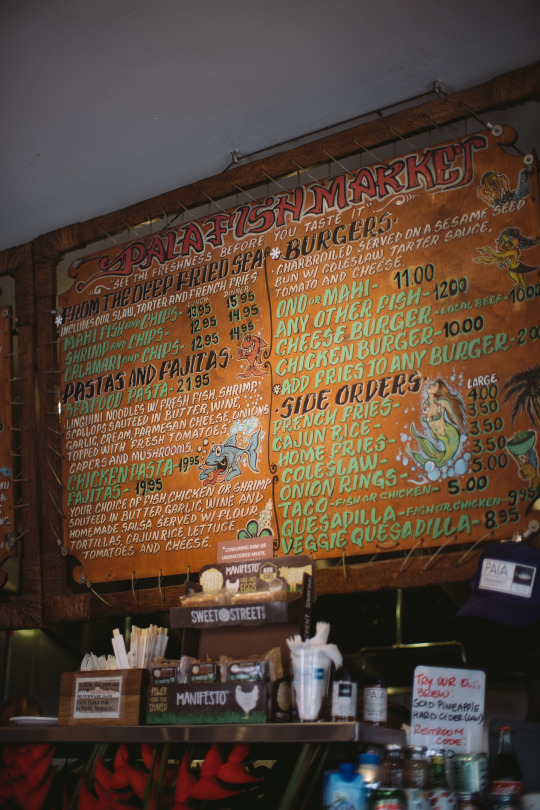 PAIA FISH MARKET
SEE THE FRESHNESS BEFORE YOU TASTE IT
FROM THE DEEP FRIED SEA
INCLUDES OUR SLAW, TARTER AND FRENCH FRIES
LUNCH DINNER
MAHI FISH AND CHIPS- 13.95 15.95
SHRIMP AND CHIPS- 12.95 14.95
CALAMARI AND CHIPS- 12.95 14.95
PASTAS AND FAJITAS
SEAFOOD PASTA- 21.95
LINGUINI NOODLES W/ FRESH FISH, SHRIMP,
SCALLOPS SAUTEED IN BUTTER, WINE,
GARLIC, CREAM, PARMESAN CHEESE, ONIONS
TOPPED WITH FRESH TOMATOES,
CAPERS AND MUSHROOMS.
CHICKEN PASTA- 19.95
FAJITAS- 19.95
YOUR CHOICE OF FISH, CHICKEN OR SHRIMP
SAUTED IN BUTTER, GARLIC, WINE AND
HOMEMADE SALSA SERVED W/ FLOUR
TORTILLAS, CAJUN RICE, LETTUCE
TOMATOES, AND CHEESE.
BURGERS
CHARBROILED SERVED ON A SESAME SEED
BUN W/ COLESLAW, TARTER SAUCE,
TOMATO AND CHEESE.
ONO OR MAHI- 11.00
ANY OTHER FISH- 12.00
CHEESE BURGER- LOCAL BEEF- 10.00
CHICKEN BURGER- 10.00
ADD FRIES TO ANY BURGER- 2.00
SIDE ORDERS
LARGE
FRENCH FRIES- 4.00
CAJUN RICE- 3.50
HOME FRIES- 3.50
COLESLAW- 3.50
ONION RINGS- 5.00
TACO- FISH OR CHICKEN- 5.00
QUESADILLA- FISH OR CHICKEN- 9.95
VEGGIE QUESADILLA- 8.95
*CONSUMING RAW OR
UNDERCOOKED MEATS,
EGGS
MANIFESTO
SWEET STREET
POWER
SHARED
MANIFESTO
PAIA
PAIA
TRY OUR
BREW:
GOLD PINEAPPLE
HARD CIDER
RESTROOM
CODE: